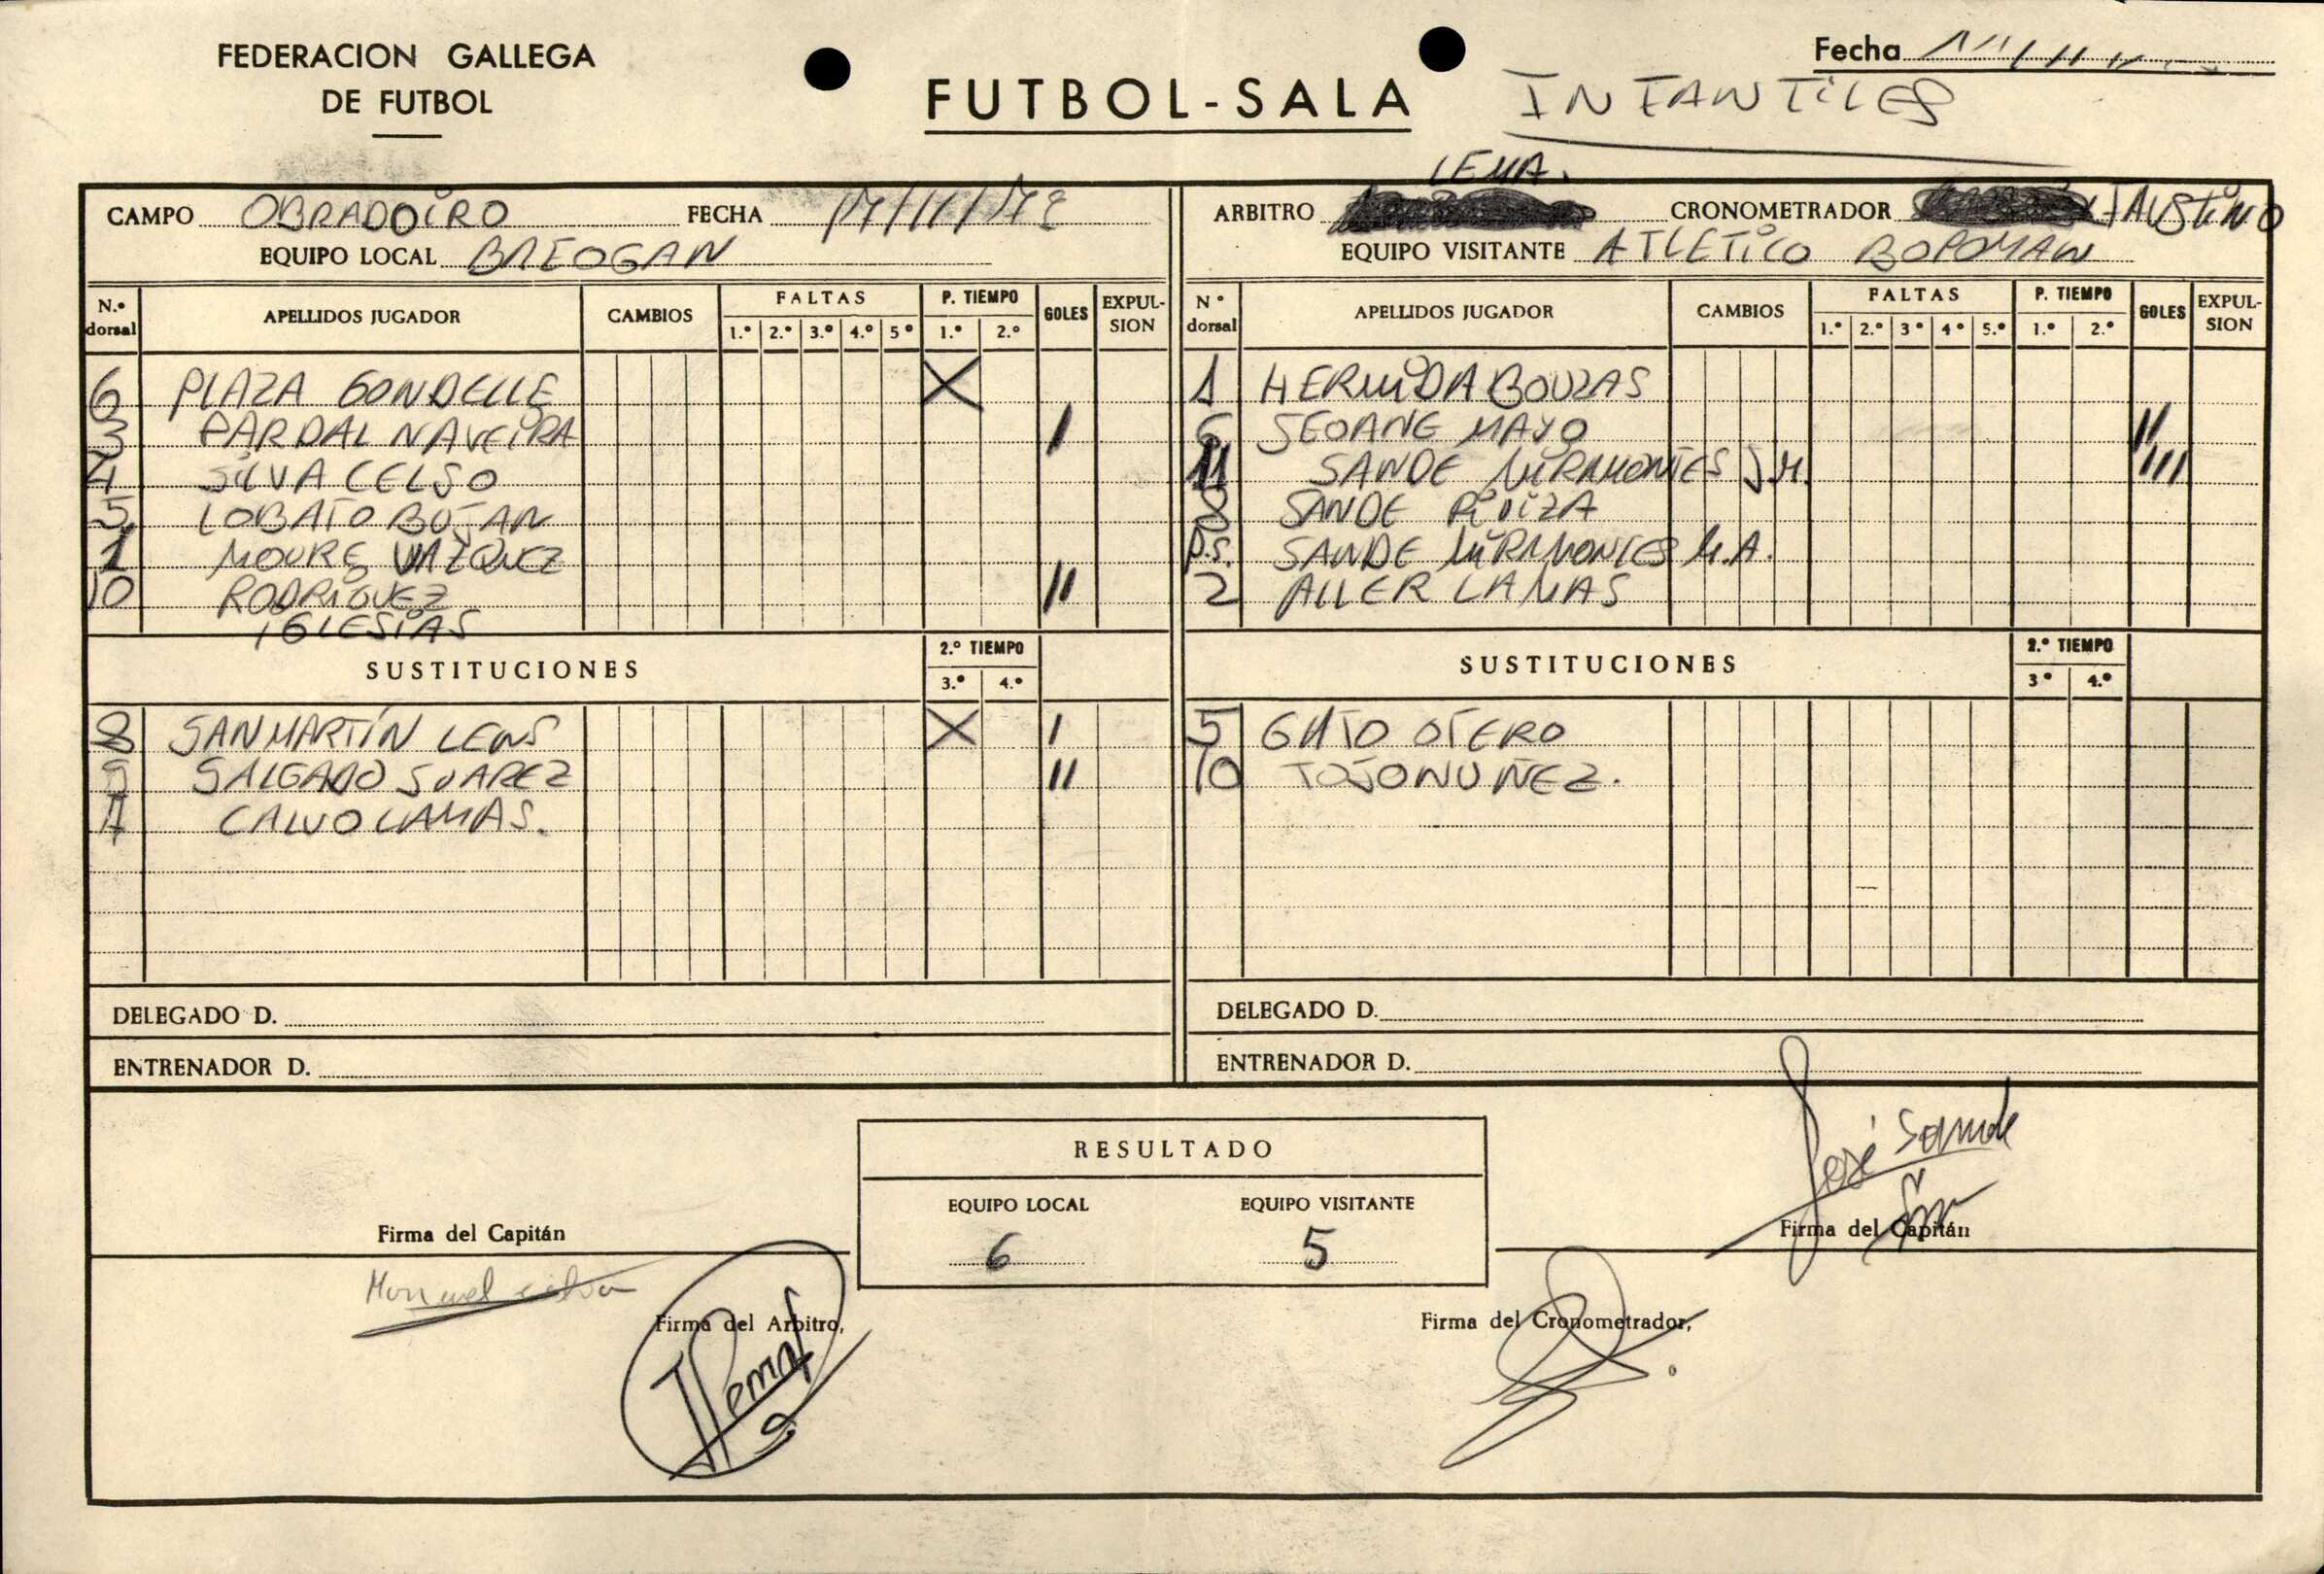 FEDERACION GALLEGA
DE FUTBOL
FUTBOL-SALA
Fecha
INFANTILES
LEMA.
CAMPO OBRADOIRO FECHA
ARBITRO CRONOMETRADOR FAUSTINO
EQUIPO LOCAL BREOGAN
EQUIPO VISITANTE ATLETICO
N.º dorsal APELLIDOS JUGADOR CAMBIOS FALTAS 1.º 2.º 3.º 4.º 5º P. TIEMPO 1.º 2.º GOLES EXPUL-SION
6 PLAZA GONDELLE X
3 PARDAL NAVEIRA I
4 SILVA CELSO
5 LOBATO BUJAN
1 MOURE VAZQUEZ
10 RODRIGUEZ II
IGLESIAS
SUSTITUCIONES 2.º TIEMPO 3.º 4.º
8 SANMARTIN LENS X I
9 SALGADO SUAREZ II
CALVO LAMAS.
DELEGADO D.
ENTRENADOR D.
Nº dorsal APELLIDOS JUGADOR CAMBIOS FALTAS 1.º 2.º 3º 4º 5.º P. TIEMPO 1.º 2.º GOLES EXPUL-SION
1 HERMIDA BOUZAS
6 SEOANE MAYO II
11 SANDE MIRAMONTES J.M. III
8 SANDE
P.S. SANDE MIRAMONTES M.A.
2 ALLER LAMAS
SUSTITUCIONES 2.º TIEMPO 3º 4.º
5 GATO OTERO
10 TOJO NUÑEZ.
DELEGADO D.
ENTRENADOR D.
RESULTADO
EQUIPO LOCAL EQUIPO VISITANTE
6 5
Firma del Capitán
Manuel Silva
José Sande
Firma del Capitán
Firma del Arbitro,
Firma del Cronometrador,